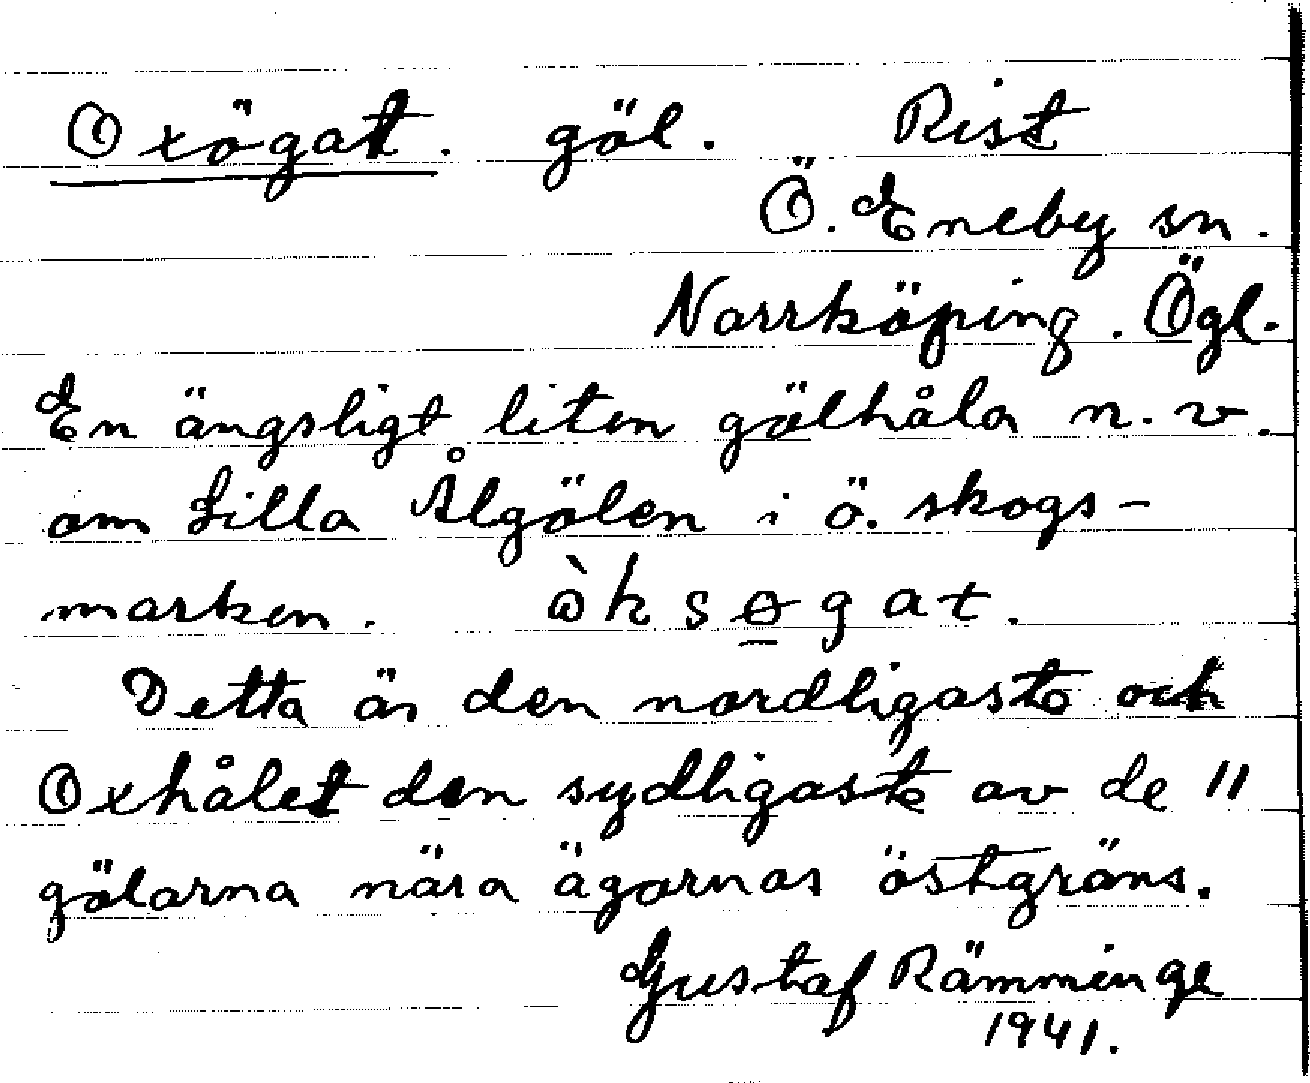 Oxögat. göl. Rist
Ö. Eneby sn.
Norrköping. Ögl.
En ängsligt liten gölhåla n. v.
om Lilla Ålgölen i ö. skogs-
marken. òksøgat.
Detta är den nordligaste och
Oxhålet den sydligaste av de 11
gölarna nära ägornas östgräns.
Gustaf Rämminge
1941.